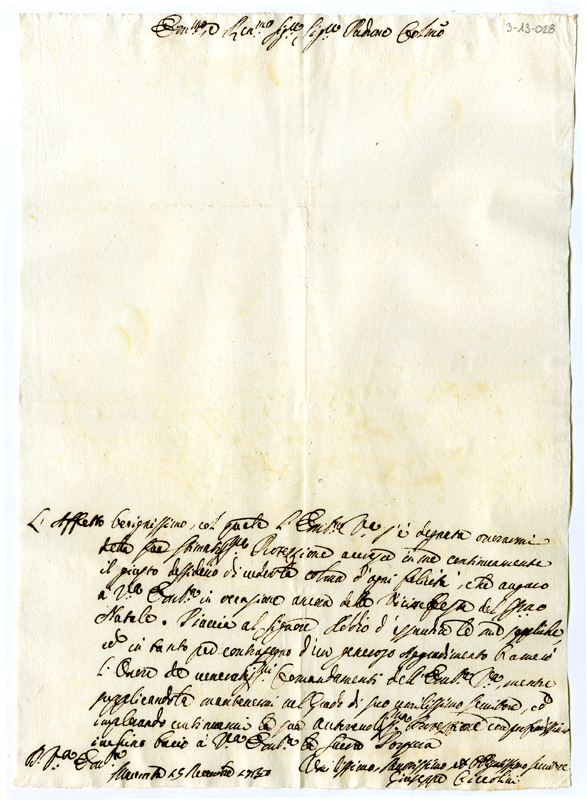 Em.mo, e Rev.mo Sig.re Sig.re Padrone Colmo
3-13-028
L'Affetto benignissimo, col quale l'Em.za V.ra s'è degnata onorarmi
della sua stimatiss.ma Protezzione accresce in me continuamente
il giusto desiderio di vederla colma d'ogni felicità, che auguro
a V.ra Em.za in occasione ancora delle Vicine feste del S.mo
Natale. Piaccia al Signore Iddio d'esaudire le mie suppliche
ed in tanto per contrasegno d'un generoso aggradimento bramerei
l'Onore de venerabiliss.mi Comandamenti dell'Em.za V.ra, mentre
supplicandola mantenermi nel Grado di suo umilissimo servitore, ed
implorando continuarmi la sua autorevoliss.ma Protezzione con profondissimo
inchino bacio a V.ra Em.za la Sacra Porpora
D. V.ra Em.za
Macerata 15 Decembre
Umilissimo, Devotissimo, et Obligatissimo Servitore
Giuseppe Ciccolini